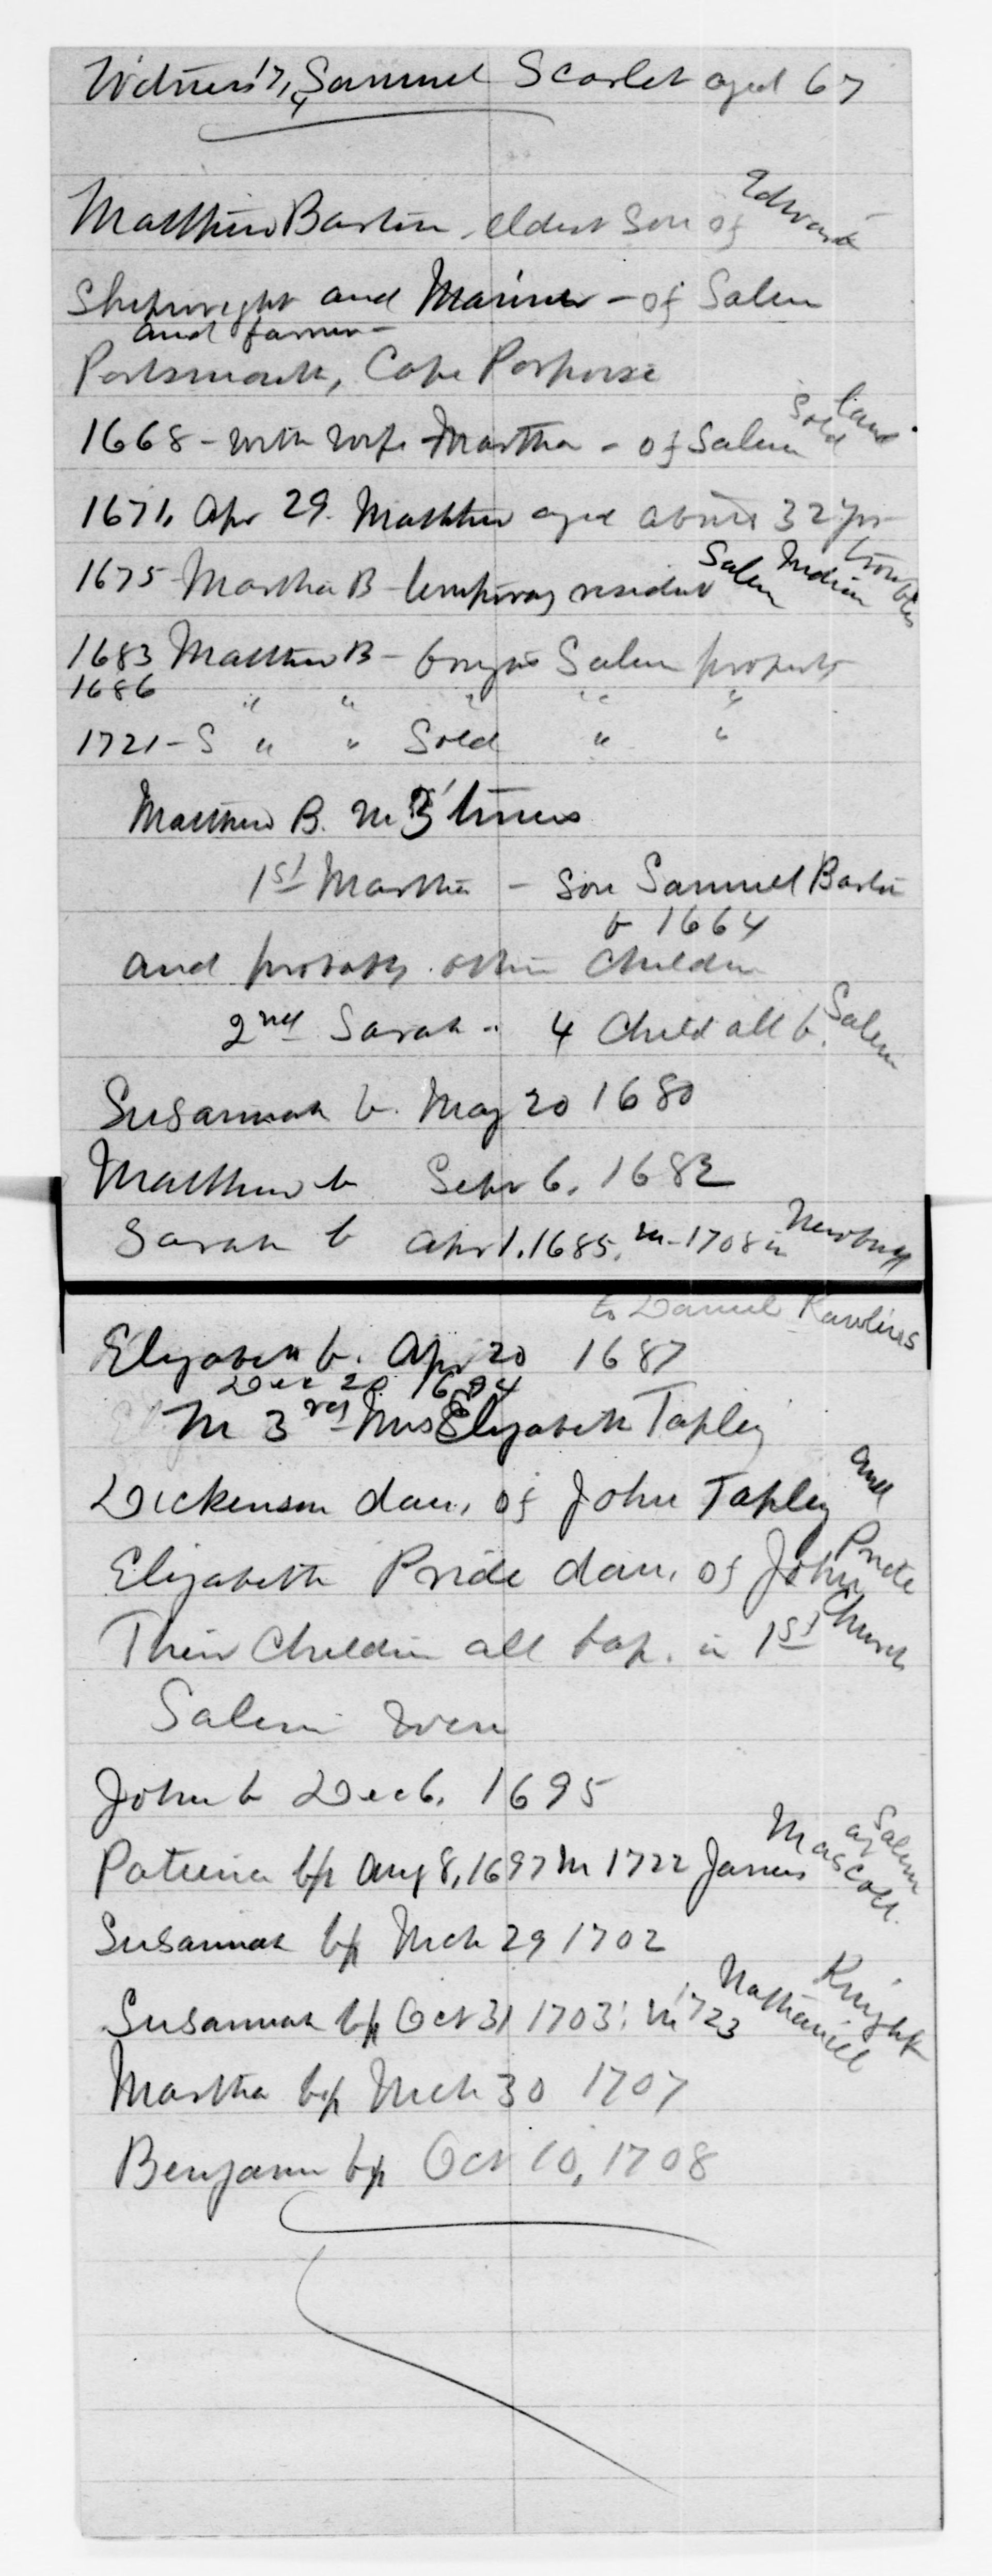 Witness, Samuel Scarlet aged 67
Matthew Barton eldest son of Edward
Shipwright and Mariner - of Salem
and farmer -
Portsmouth, Cape Porpoise
1668 - with wife Martha - of Salem sold land
1671, Apr 29. Matthew aged about 32 yrs
1675 Martha B - temporary resident Salem Indian troubles
1683 Matthew B - bought Salem property
1686 " " " " "
1721 - S " " Sold " "
Matthew B. m 3 times
1st Martha - son Samuel Barton
b 1664
and probably other children
2nd Sarah - 4 Child all b. Salem
Susannah b. May 20 1680
Matthew b Sept 6, 1682
Sarah b Apr 1. 1685. m - 1708 in Newbury
to Daniel Rawlins
Elizabeth b. Apr 20 1687
Dec 20 1694
M 3rd Mrs Elizabeth Tapley
Dickenson dau, of John Tapley and
Elizabeth Pride dau. of John Pride
Their Children all bap. in 1st Church
Salem were
John b Dec 6. 1695
bp Aug 8, 1697 m 1722 James Mascoll of Salem
Susannah bp Mch 29 1702
Susannah bp Oct 31 1703; m 1723 Nathaniell Knight
Martha bp Mch 30 1707
Benjamin bp Oct 10, 1708